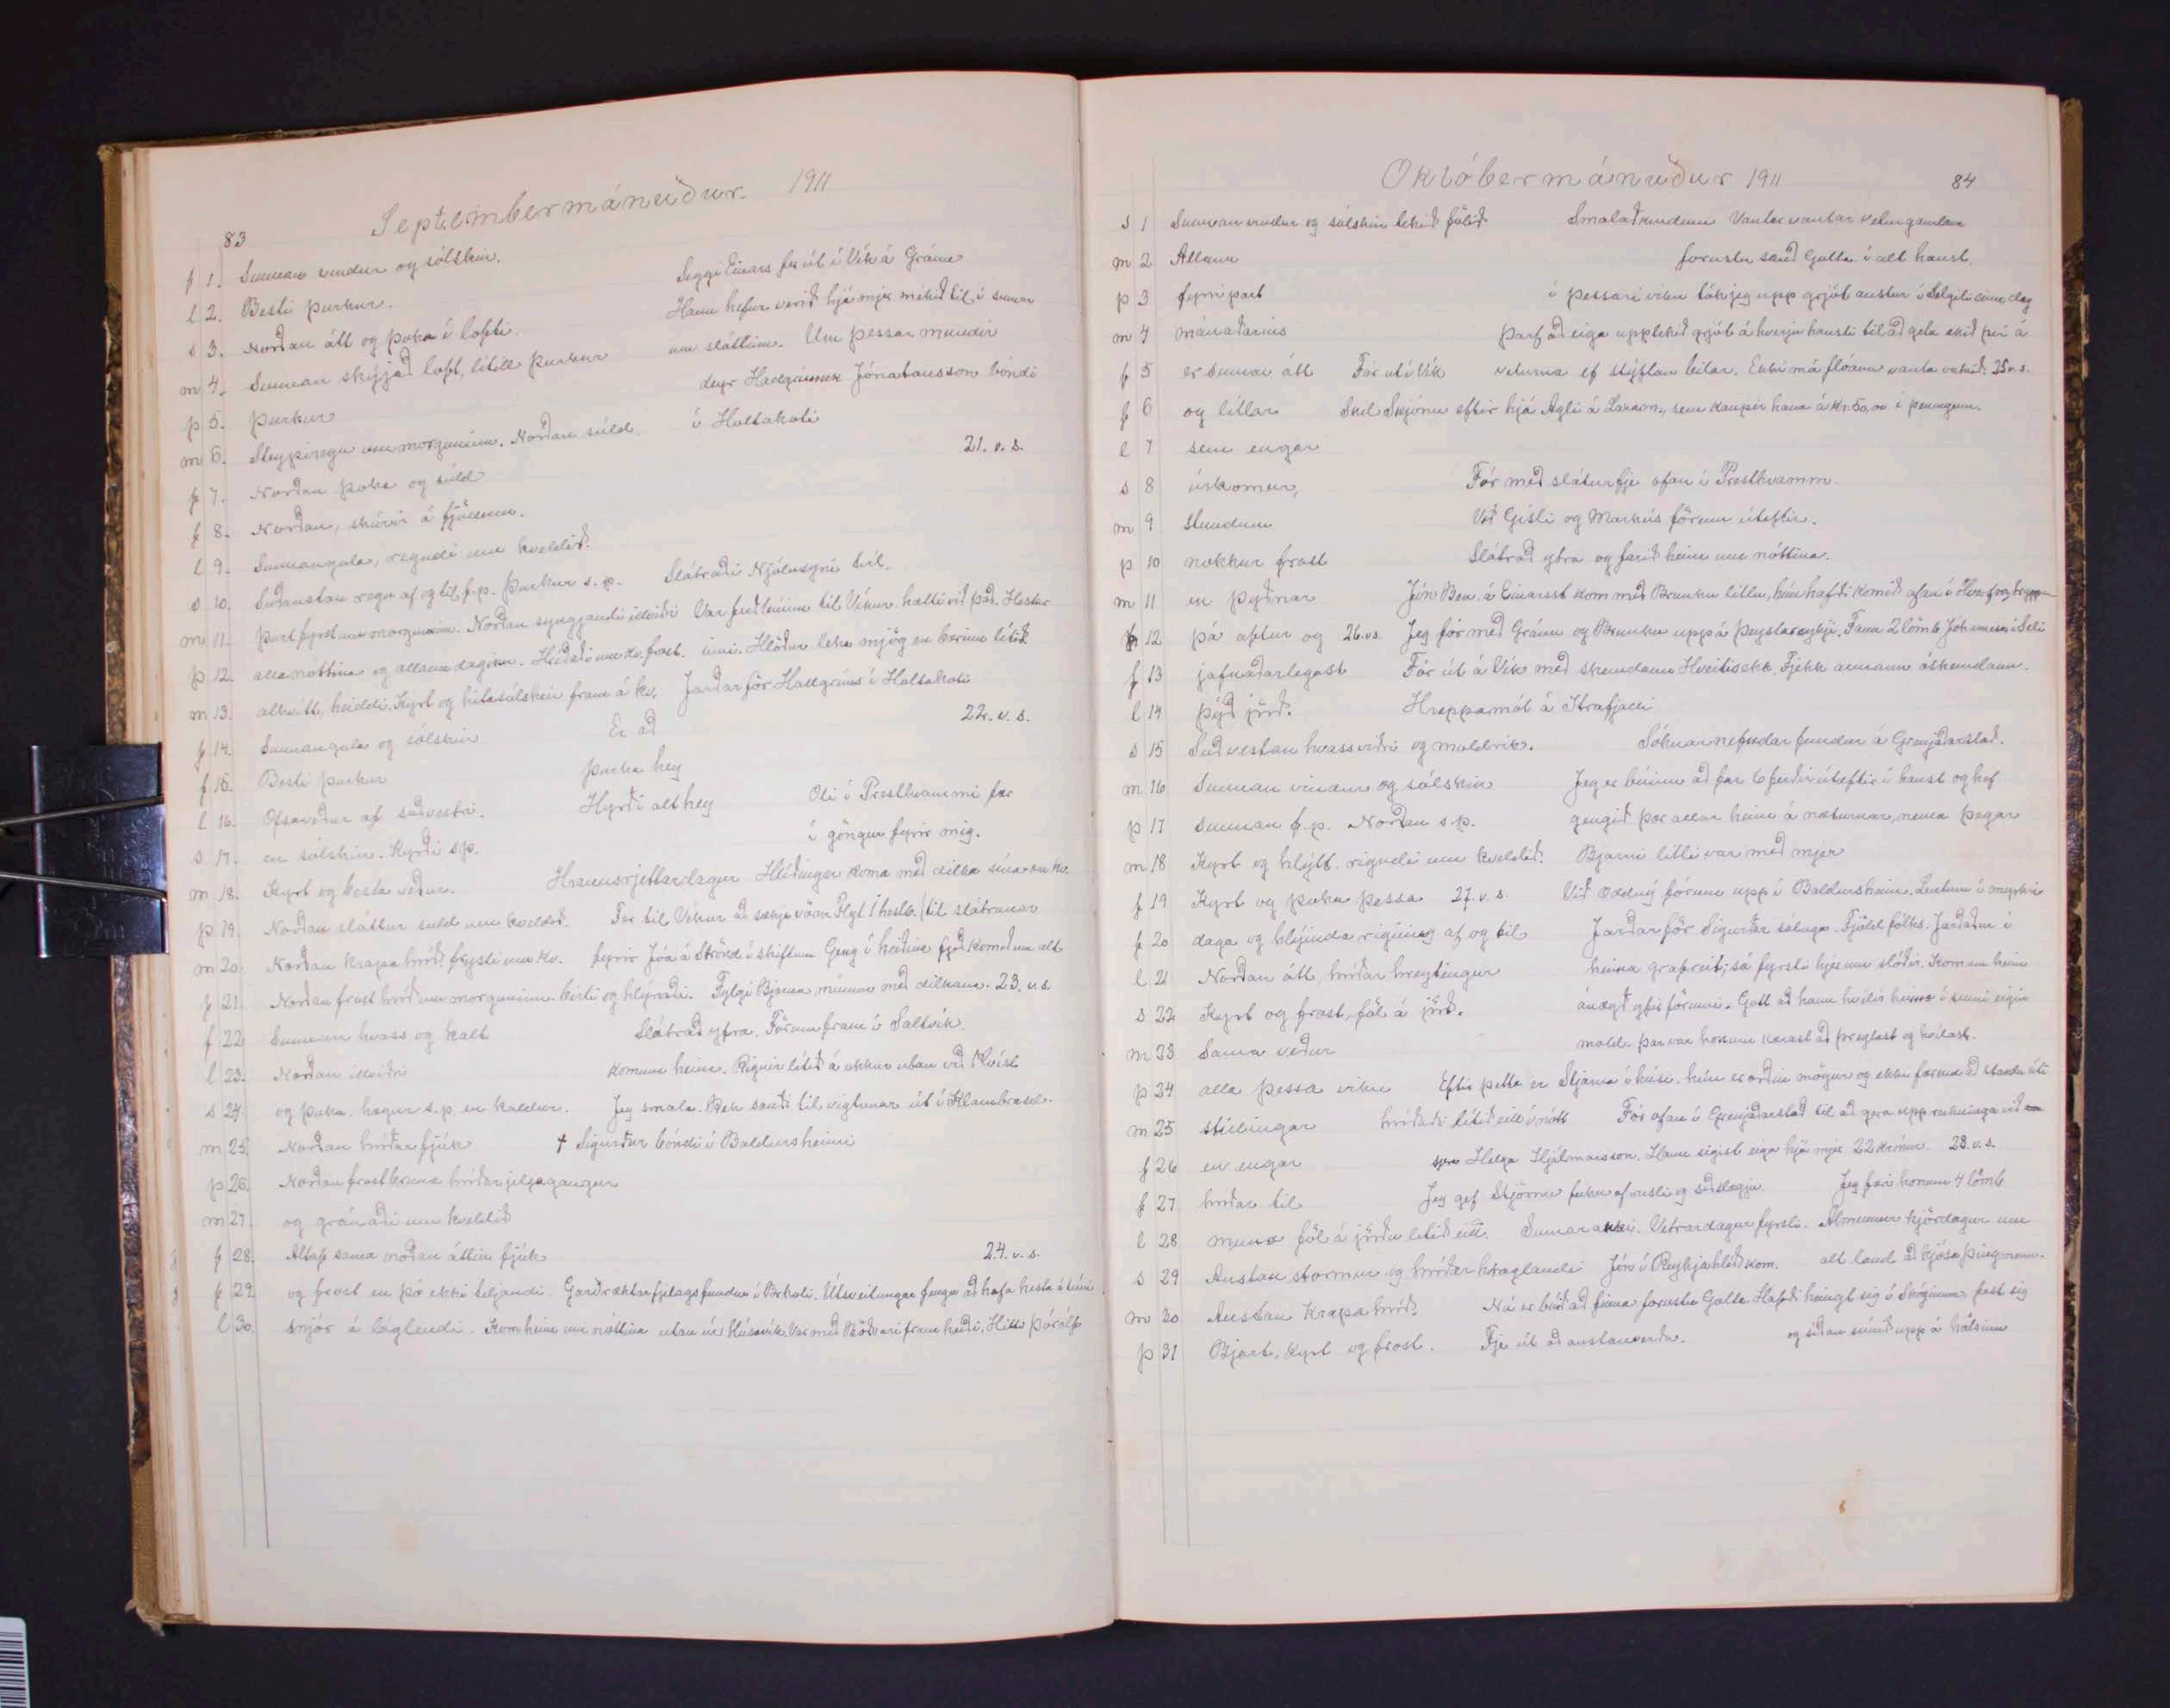 83
Septembermánuður. 1911
f 1. Sunnan vindur og sólskin. Siggi Einars fer út í Vík á Grána
l 2. Besti þurkur. Hann hefur verið hjá mjer mikið til í sumar
s 3. Norðan átt og þoka í lofti. um sláttinn. Um þessar mundir
m 4. Sunnan skýjað loft, lítill þurkur deyr Hallgrímur Jónatansson bóndi
þ 5. þurkur í Holtakoti
m 6. Steypiregn um morguninn. Norðan súld 21. v. s.
f 7. Norðan þoka og súld
f 8. Norðan, skúrir á fjöllum.
l 9. Sunnangola, rigndi um kveldið.
s 10. Suðaustan regn af og til f.p. þurkur s.p. Slátraði
m 11. þurt fyrst um morguninn. Norðan syngjandi illviðri Var ferðbúinn til Víkur, hætti við það. Hestar
þ 12. alla nóttina og allann daginn. Hríðaði um kv. frost. inni. Hlöður leka mjög en bærinn lítið
m 13. alhvítt, heiddi. Kyrt og hita sólskin fram á kv. Jarðarför Hallgríms í Holtakoti
f 14. Sunnangola og sólskin Er að 22. v. s.
f 15. Besti þurkur þurka hey
l 16. Ofsaveður af suðvestri. Hyrði alt hey Oli í Presthvammi fer
s 17. en sólskin. Kyrði s.p. í göngur fyrir mig.
m 18. Kyrt og besta veður. Hraunsrjettardagur Hlíðingar koma með dilka sína um kv.
þ 19. Norðan sláttur súld um kveldið. Fer til Víkur að sækja vörur Flyt 1 hestb. til slátrunar
m 20. Norðan krapahríð frysti um kv. fyrir Jóa á Strönd í skiftum Geng í heiðina fjeð komið um alt
f 21. Norðan frost hríð um morguninn. birti og hlýnaði. Fylgi Bjarna mínum með dilkana. 23. v. s.
f 22 Sunnan hvass og kalt Slátrað ytra. Förum fram í Saltvík.
l 23. Norðan illviðri komum heim. Rignir lítið á okkur utan við Kvísl
s 24. og þoka. hægur s.p. en kaldur. Jeg smala. Rek sauði til vigtunar út í Klambrasel.
m 25. Norðan hríðar fjúk † Sigurður bóndi í Baldursheimi
þ 26. Norðan frostbruna hríðar jeljagangur
m 27. og gránaði um kveldið
f 28. Altaf sama norðan áttin fjúk 24. v. s.
f 29. og frost en þó ekki teljandi. Garðræktarfjelagsfundur í Útsveitungar fengu að hafa hesta á túni
l 30. snjór á láglendi. Kom heim um nóttina utan úr Húsavík. Var með Böðvari fram heiði. Hitti Þórólf
Októbermánuður 1911 84
s 1 Sunnan vindur og sólskin tekið fölið Smalað kindum Vantar veturgamlann
m 2 Allann forustu sauð Galta í alt haust.
þ 3 fyrri part í þessari viku tók jeg upp grjót austur í einn dag
m 4 mánaðarins Þarf að eiga upptekið grjót á hverju hausti til að geta ekið því á
f 5 er sunnan átt Fór út í Vík veturna ef stýflan bilar. Ekki má flóann vanta vatnið. 25 v. s.
f 6 og litlar Skil Skjónu eftir hjá Agli á Laxam., sem kaupir hana á Kr. 50,00 í peningum.
l 7 sem engar
s 8 úrkomur, Fór með sláturfje ofan í Presthvamm.
m 9 stundum Við Gísli og Markús förum úteftir.
þ 10 nokkur frost Slátrað ytra og farið heim um nóttina.
m 11 en þýðnar Jón Ben. á Einarsst kom með Brunku litlu, hún hafði komið ofan í
f 12 þá aftur og 26. v.s. Jeg fór með Grána og Brunku upp á Þeystareyki. Fann 2 lömb Jóhannesar í Seli
f 13 jafnaðarlegast Fór út á Vík með skemdann Hveitisekk. Fjekk annann óskemdann.
l 14 þýð jörð. Hreppamót á Ytrafjalli
s 15 Suðvestan hvassviðri og moldrok. Sóknarnefndar fundur á Grenjaðarstað.
m 16 Sunnan vindur og sólskin Jeg er búinn að far 6 ferðir úteftir í haust og hef
þ 17 sunnan f.p. Norðan s.p. gengið þær allar heim á næturnar, nema þegar
m 18 Kyrt og hlýtt. rigndi um kveldið. Bjarni litli var með mjer
f 19 Kyrt og þoka þessa 27. v. s. Við Oddný fórum upp í Baldursheim. Lentum í myrkri
f 20 daga og hlýinda rigning af og til Jarðarför Sigurðar sáluga. Fjöld fólks. Jarðaður í
l 21 Norðan átt, hríðar hreytingur heima grafreit; sá fyrsti hjer um slóðir. Komum heim
s 22 Kyrt og frost, föl á jörð. ánægð yfir förinni. Gott að hann hvílir heima í sinni eigin
m 23 Sama veður mold. þar var honum kærast að þreytast og hvílast.
þ 24 alla þessa viku Eftir þetta er Stjarna í húsi. hún er orðin mögur og ekki fær um að standa úti
m 25 stillingar hríðaði lítið eitt í nótt Fór ofan í Grenjaðarstað til að gera upp reikninga við
f 26 en engar Helga Hjálmarsson. Hann sigist eiga hjá mjer 22 krónur. 28. v. s.
f 27 hríðar til Jeg gef Stjörnu tuku af rusli og síðslægju. Jeg færi honum 4 lömb
l 28 muna föl á jörðu lítið eitt. Sunnar Vetrardagur fyrsti. Almennur kjördagur um
s 29 Austan stormur og hríðar hraglandi Jón í Reykjahlíð kom. alt land að kjósa þingmenn.
m 30 Austan Krapahríð. Nú er búið að finna forustu Galta Hafði heingt sig í Skóginum, fest sig
þ 31 Bjart, kyrt og frost. Fje út að austanverðu. og síðan snúið upp á hálsinn